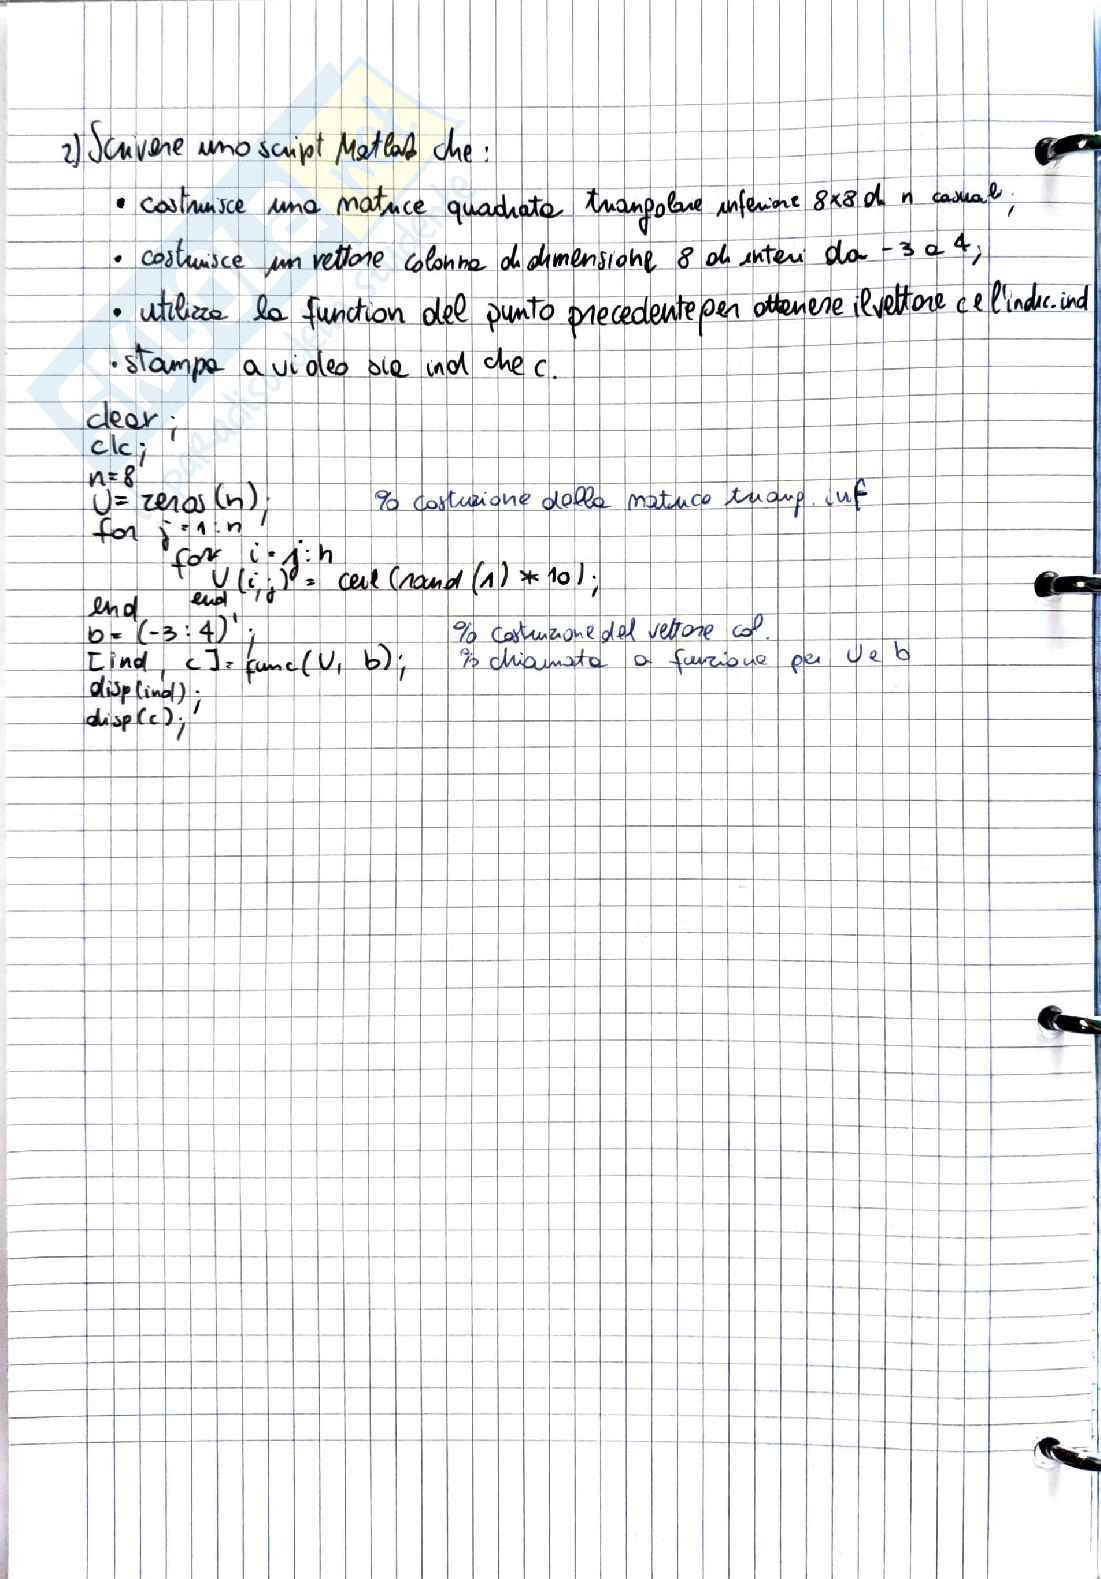 2) Scrivere uno script Matlab che:
• costruisce una matrice quadrata triangolare inferiore 8x8 di n casuale;
• costruisce un vettore colonna di dimensione 8 di interi da -3 a 4;
• utilizza la function del punto precedente per ottenere il vettore c e l'indic. ind
• stampa a video sia ind che c.
clear;
clc;
n=8
U= zeros(n); % costuzione della matrice triang. inf
for j=1:n
for i=j:n
U(i,j) = ceil (rand (1) * 10);
end
end
b= (-3:4)'; % costruzione del vettore col.
[ind, c]= func(U, b); % chiamata a funzione per U e b
disp(ind);
disp(c);